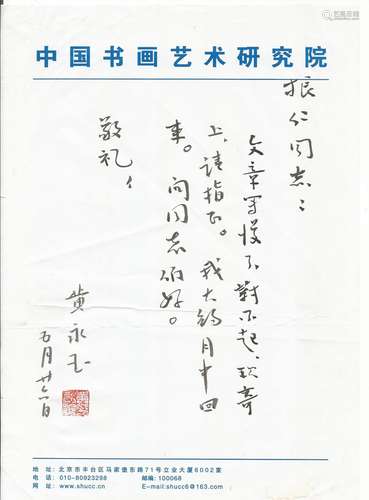 中国书画艺术研究院
振仁同志：
文章写慢了，对不起，现寄
上，请指正。我大约月中回
来。问同志们好。
敬礼！
黄永玉
五月廿六日
地 址：北京市丰台区马家堡东路71号立业大厦6002室
电 话：010-80923298 邮编：100068
网 址：www.shucc.cn E-mail:shucc6@163.com